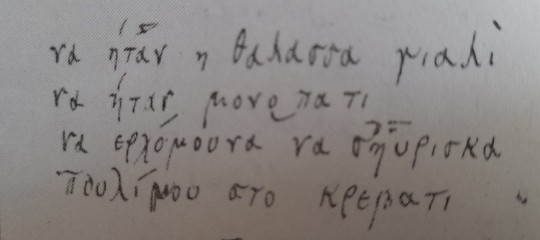 να ήταν η θαλασσα γιαλὶ
να ήταν μονοπατι
να ερχόμουνα να σηύρισκα
πουλίμου στο κρεβατι